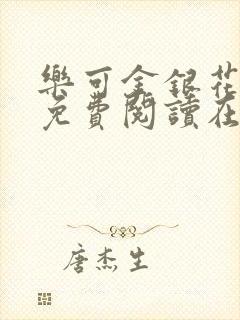 樂可金銀花
免費閱讀在
唐杰生